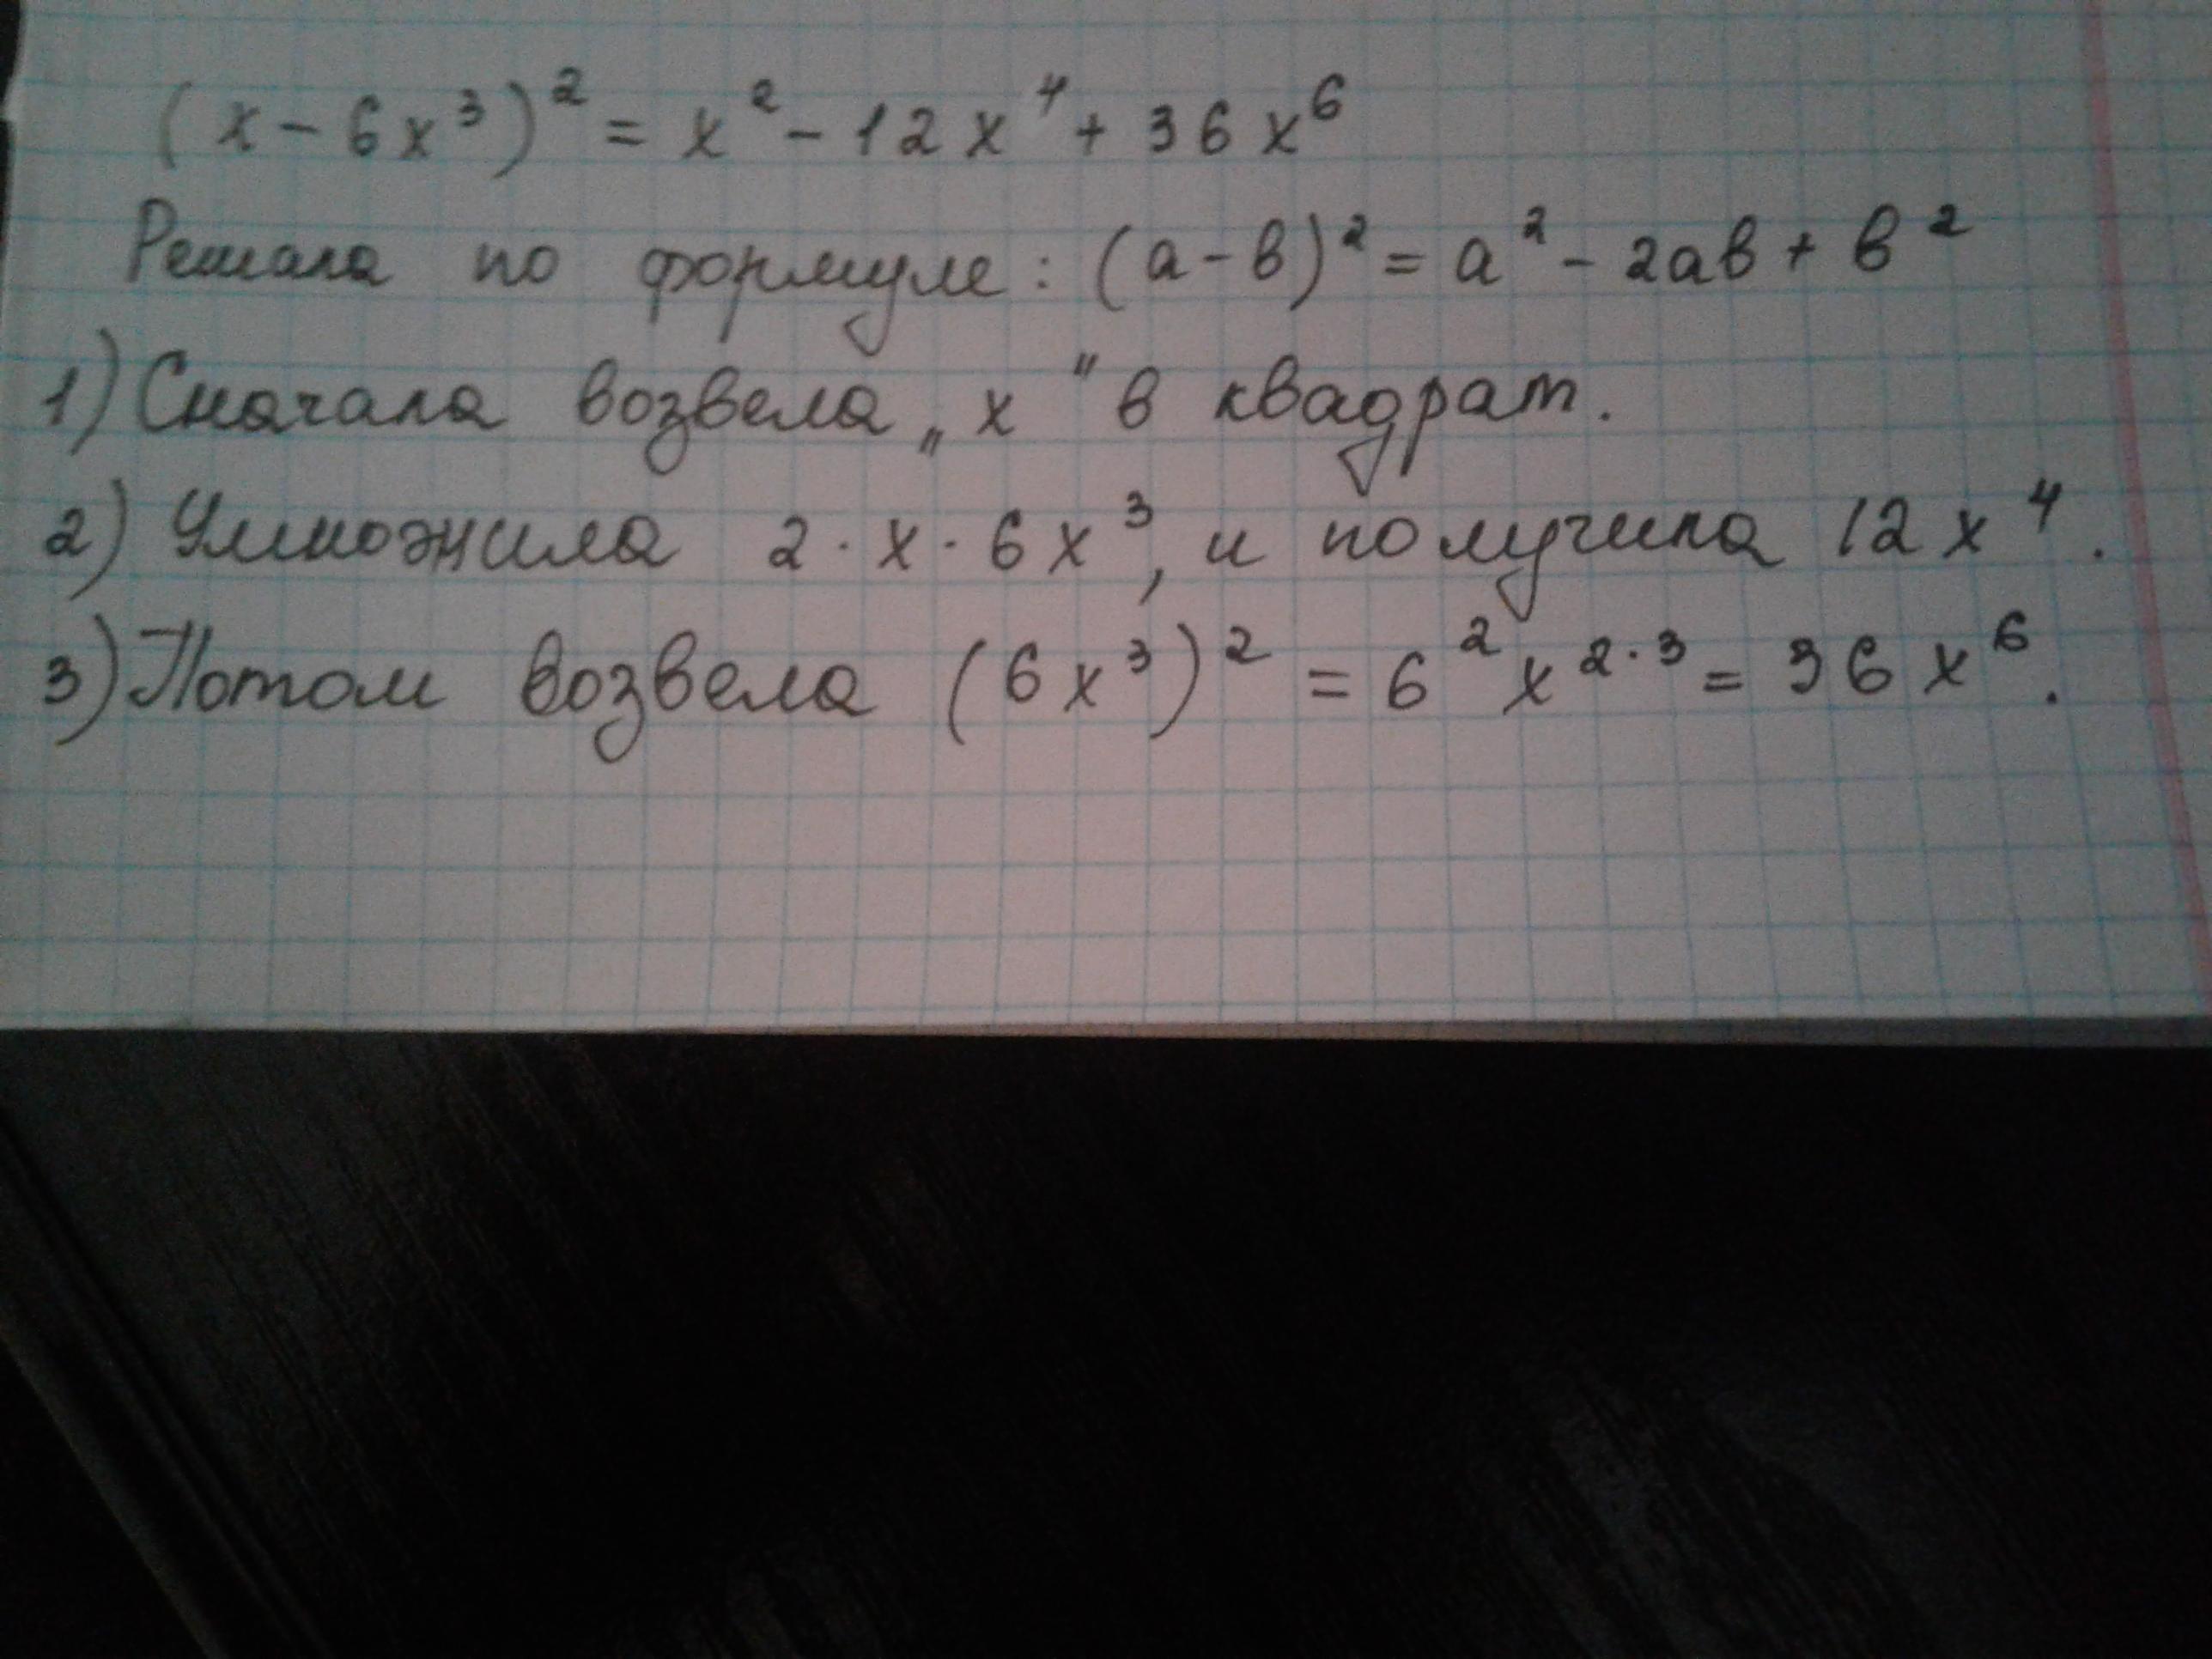 (x - 6x³)² = x² - 12x⁴ + 36x⁶
Решала по формуле: (а - в)² = а² - 2ав + в²
1) Сначала возвела „х" в квадрат.
2) Умножила 2 · х · 6х³, и получила 12х⁴.
3) Потом возвела (6х³)² = 6²х²·³ = 36х⁶.